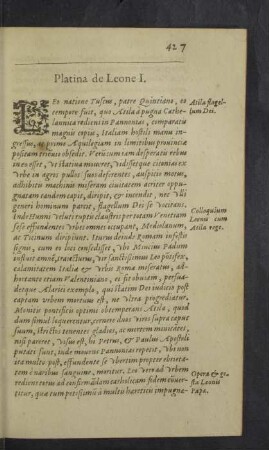 427
Platina de Leone I.
LEo natione Tuscus, patre Quintiano, eo
tempore fuit, quo Atila à pugna Cathe-
launica rediens in Pannonias, comparatis
magnis copiis, Italiam hostili manu in-
gressus, ac primo Aquilegiam in limitibus provinciæ
positam triennio obsedit. Verùm cum iam desperatis rebus
in eo esset, ut statim moveret, vidissetque ciconias ex
Urbe in agros pullos suos deferentes, auspicio motus,
adhibitis machinis miseram civitatem acriter oppu-
gnatam tandem capit, diripit, & incendit, nec ulli
generi hominum parcit, flagellum Dei se dictitans.
Inde Hunni veluti ruptis claustris per totam Venetiam
sese effundentes urbes omnes occupant, Mediolanum,
ac Ticinum diripiunt.
amnem, traiecturus, vir sanctissimus Leo pontifex,
calamitatem Italiæ & urbis Romæ miseratus, ad-
hortante etiam Valentiniano, ei fit obviam, persua-
detque Alarici exemplo, qui statim Dei iudicio post
captam urbem mortuus est, ne ultra progrediatur.
Monitis pontificis optimi obtemperans Atila, quod
dum simul loquerentur, cernere duos viros supra caput
suum, strictos tenentes gladios, ac mortem minitantes,
nisi pareret, visus est, hi Petrus, & Paulus Apostoli
putati sunt, inde movens Pannonias repetit, ubi non
ita multo post, effundente se ubertim præter ebrieta-
tem è naribus sanguine, moritur. Leo vero ad urbem
rediens totus ad confirmandam catholicam fidem conver-
titur, quæ tum
Atila flagel-
lum Dei.
Colloquium
Leonis cum
Atila rege.
Opera & ge-
sta Leonis
Papæ.